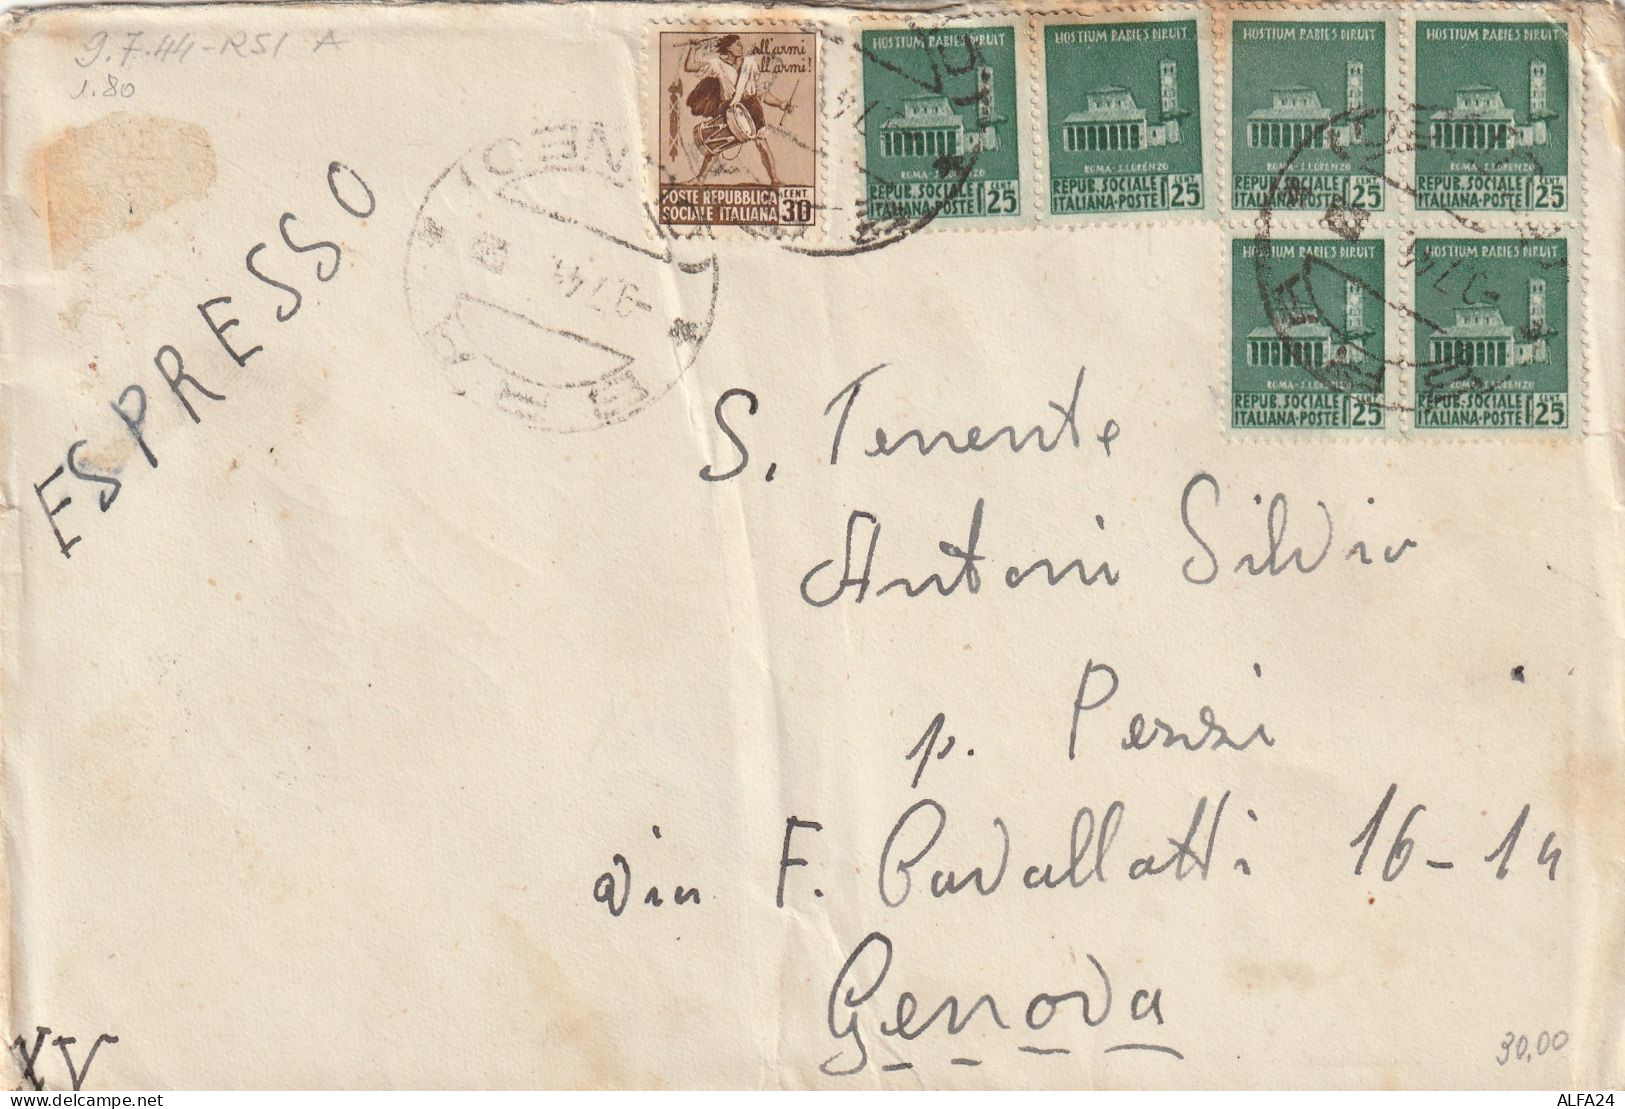 9.7.44-RSI A
1.80
ESPRESSO
all'armi
all'armi!
POSTE REPUBBLICA CENT.
SOCIALE ITALIANA 30
HOSTIUM RABIES DIRUIT
ROMA-S.LORENZO
REPUB.SOCIALE CENT
ITALIANA-POSTE 25
HOSTIUM RABIES DIRUIT
ROMA-S.LORENZO
REPUB.SOCIALE CENT
ITALIANA-POSTE 25
HOSTIUM RABIES DIRUIT
ROMA-S.LORENZO
REPUB.SOCIALE CENT
ITALIANA-POSTE 25
HOSTIUM RABIES DIRUIT
ROMA-S.LORENZO
REPUB.SOCIALE CENT
ITALIANA-POSTE 25
HOSTIUM RABIES DIRUIT
ROMA-S.LORENZO
REPUB.SOCIALE CENT
ITALIANA-POSTE 25
HOSTIUM RABIES DIRUIT
ROMA-S.LORENZO
REPUB.SOCIALE CENT
ITALIANA-POSTE 25
-9.7.44
S. Tenente
Antoni Silvio
p. Pezzi
via F. Cavallotti 16-14
Genova
XV
30,00
ALFA24